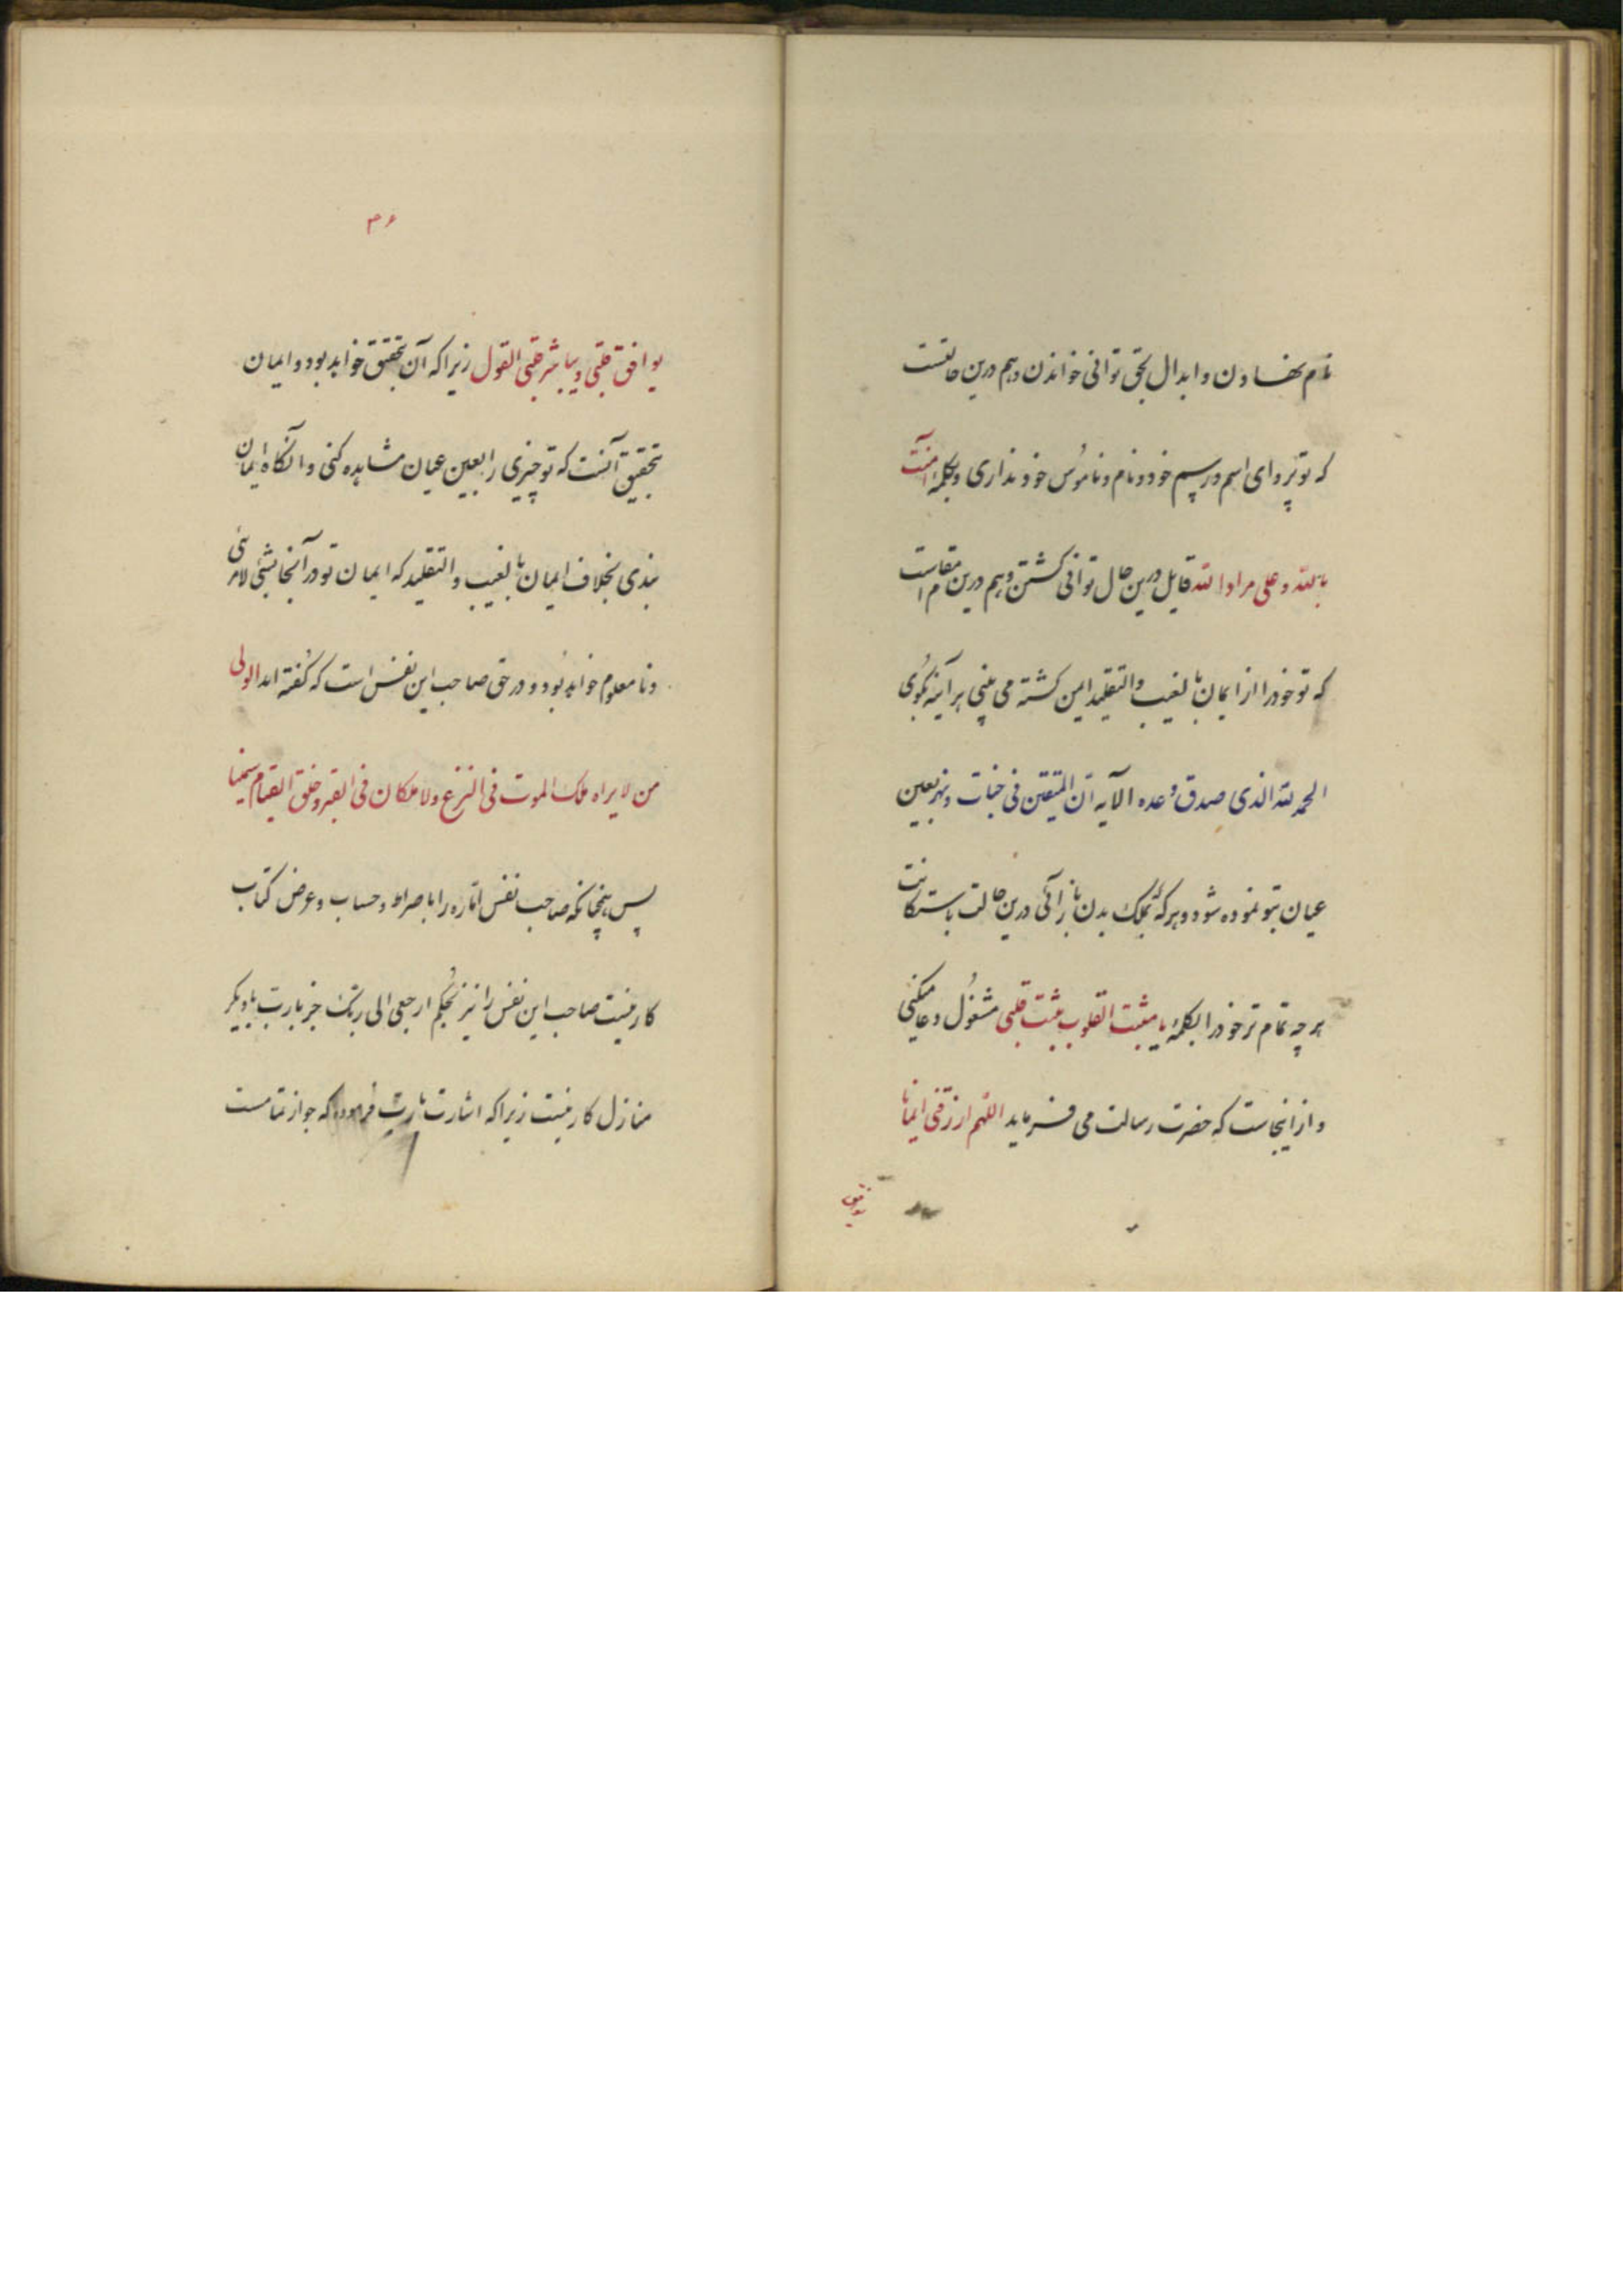 نام نهادن و ابدال بحق توانی خواندن و هم درین حالتست
که تو پروای اسم و رسم خود و نام و ناموس خود نداری و بکلمهٔ آمنت
بالله و علی مراد الله قایل درین حال توانی کشتن و هم درین مقام است
که تو خود را از ایمان بالغیب والتقلید ایمن کشته می بینی هر آینه بگوی
الحمد لله الذی صدق وعده الآیه ان المتقین فی جنات و نهر بعین
عیان بتو نموده شود و هر که بملک بدن باز آئی درین حالت باستکانت
هر چه تمام تر خود را بکلمهٔ یا مثبت القلوب ثبت قلبی مشغول دعا میکنی
و از اینجاست که حضرت رسالت می فرماید اللهم ارزقنی ایمانا
یوافق
۳۶
یوافق قلبی ویباشر قلبی القول زیرا که آن بتحقیق خواهد بود و ایمان
تحقیق آنست که تو چیزی را بعین عیان مشاهده کنی و آنکاه ایمان
بندی بخلاف ایمان بالغیب والتقلید که ایمان تو در آنجا بشئ لامرئی
و نا معلوم خواهد بود و در حق صاحب این نفس است که گفته اند الولی
من لا یراه ملک الموت فی النزع ولا ملکان فی القبر و خلق القیام
پس چنانکه صاحب نفس اماره را با صراط و حساب و عرض کتاب
کار نیست صاحب این نفس را نیز بحکم ارجعی الی ربک جز با رب با دیگر
منازل کار نیست زیرا که اشارت با رب فرموده که جواز تمامست